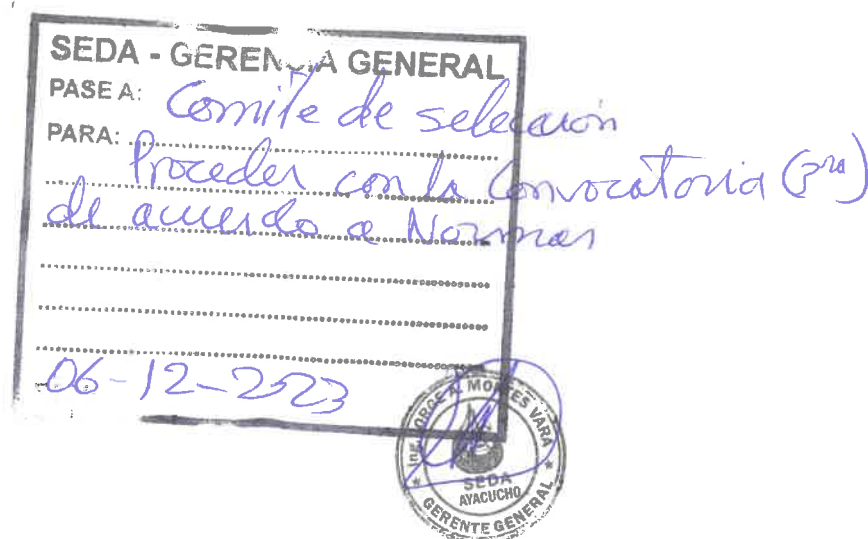 SEDA - GERENCIA GENERAL
PASE A: Comite de selección
PARA:
Proceder con la Convocatoria (3ra)
de acuerdo a Normas
06-12-2023
Ing. JORGE A. MONTES VARA
SEDA
AYACUCHO
GERENTE GENERAL